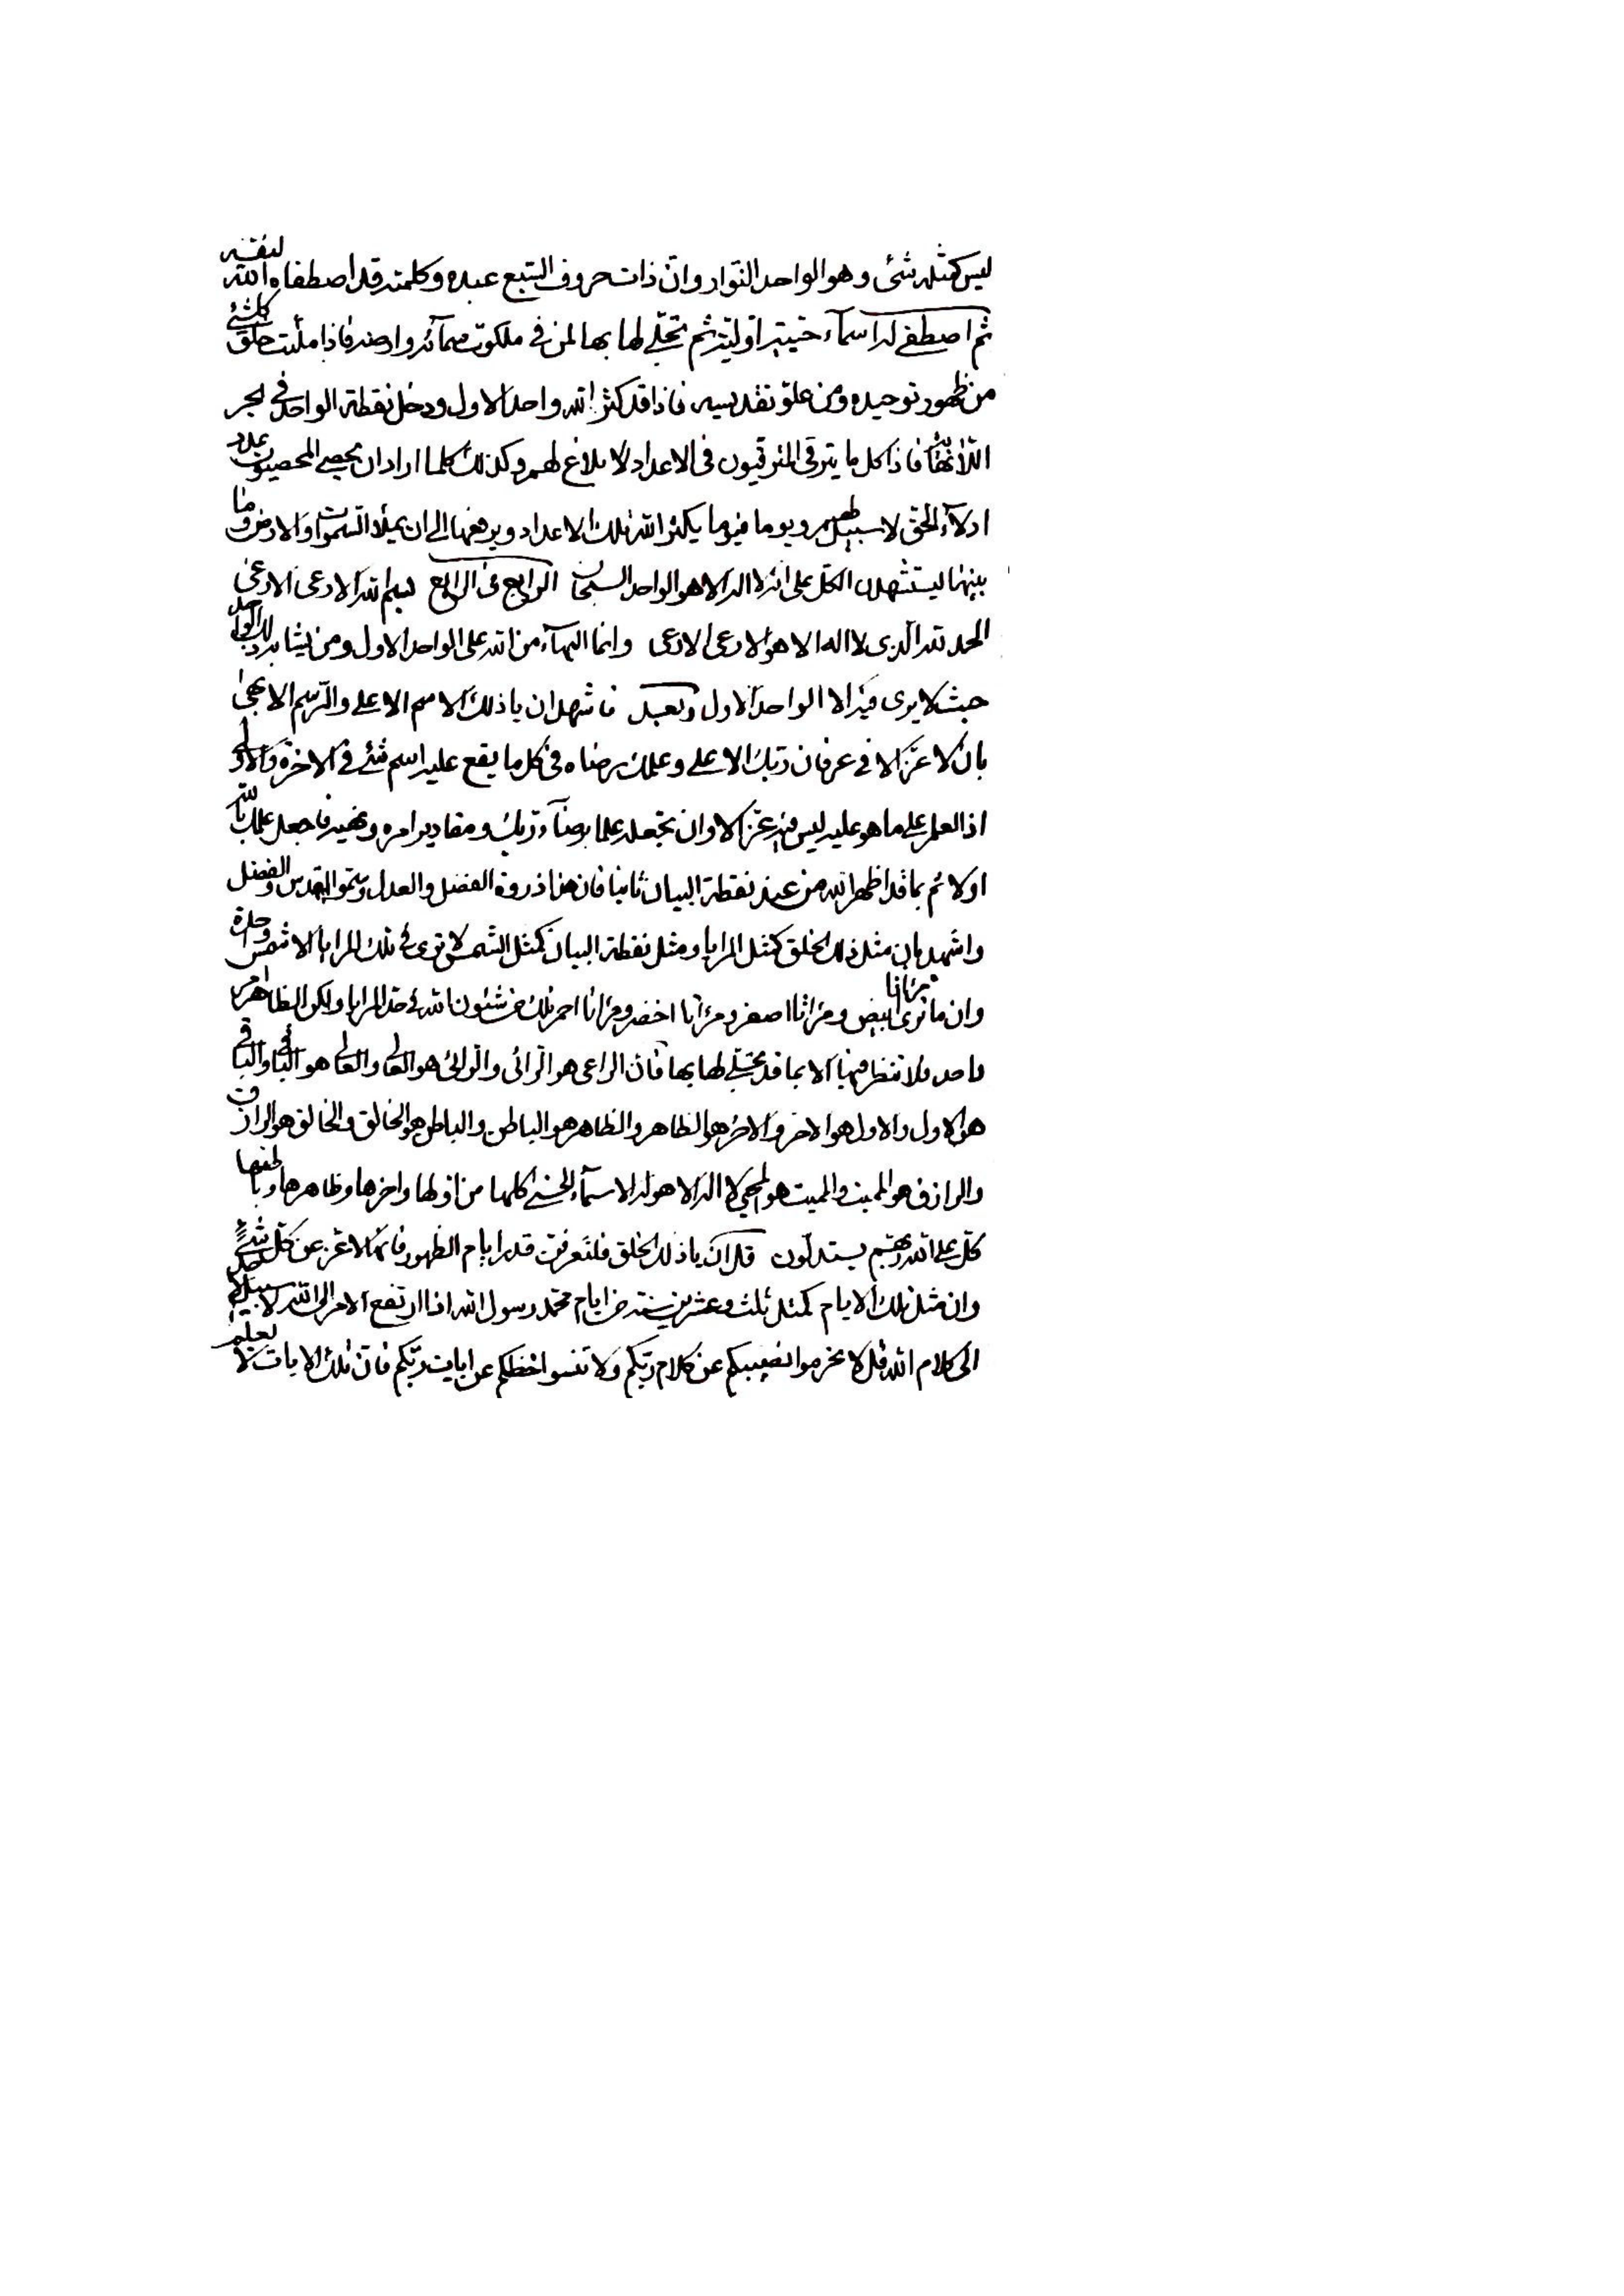 ليس كمثله شئ وهو الواحد النوار وان ذات حروف السبع عبده وكلمته قد اصطفاه الله لنفسه
ثم اصطفى له اسماء حيية اولية ثم تجلى لها بها لمن فى ملكوت سمائه وارضه فاذا ملئت خلق كلشئ
من ظهور توحيده ومن علو تقديسه فاذا قد كثر الله واحد الاول ودخل نقطة الواحد فى لجر
اللانهاية فاذا كل ما يترقى المترقيون فى الاعداد لا بلاغ لهم وكذلك كلما اراد ان يحصى المحصيون عدد
ادلاء الحق لا سبيل لهم ويوما فيوما يكثر الله تلك الاعداد ويرفعها الى ان يملا السموات والارض وما
بينهما ليستشهدن الكل على انه لا اله الا هو الواحد السبحان الرابع فى الرابع بسم الله الادعى الادعى
الحمد لله الذى لا اله الا هو الادعى الادعى وانما البهاء من الله على الواحد الاول ومن يشابه ذلك الواحد
حيث لا يرى فيه الا الواحد الاول وبعد فاشهد ان يا ذلك الاسم الاعلى والرسم الابهى
بان لا عز الا فى عرفان ربك الاعلى وعلمك برضاه فى كل ما يقع عليه اسم شئ فى الاخرة والاولى
اذ العلم على ما هو عليه ليس فيه عز الا وان تجعله علما برضاء ربك ومقادير امره ونهيه فاجعل علمك بالله
اولا ثم بما قد اظهر الله من عند نقطة البيان ثانيا فان هذا ذروة الفضل والعدل وسمو القدس والفضل
واشهد بان مثل ذلك الخلق كمثل المرايا ومثل نقطة البيان كمثل الشمس لا ترى فى تلك المرايا الا شمس واحدة
وان ما ترى مرءاتا ابيض ومرءاتا اصفر ومرءاتا اخضر ومرءاتا احمر تلك من شئون الله فى حد المرايا ولكن الظاهر امر
واحد فلا تنظر فيها الا بما قد تجلى لها بها فان الراعى هو الرائى والرائى هو العالى والعالى هو الباقى والباقى
هو الاول والاول هو الاخر والاخر هو الظاهر والظاهر هو الباطن والباطن هو الخالق والخالق هو الرازق
والرازق هو المميت والمميت هو المحيى لا اله الا هو له الاسماء الحسنى كلها من اولها واخرها وظاهرها وباطنها
كل على الله ربهم يستدلون قل ان يا ذلك الخلق فلتعرفن قدر ايام الظهور فانها لا عز عن كل شئ
وان مثل تلك الايام كمثل ثلث وعشرين سنة من ايام محمد رسول الله اذا ارتفع الامر الى الله لا سبيل لاحد
الى كلام الله قل لا تحرموا نصيبكم عن كلام ربكم ولا تنسوا حظكم عن ايات ربكم فان تلك الايات لا يعلم